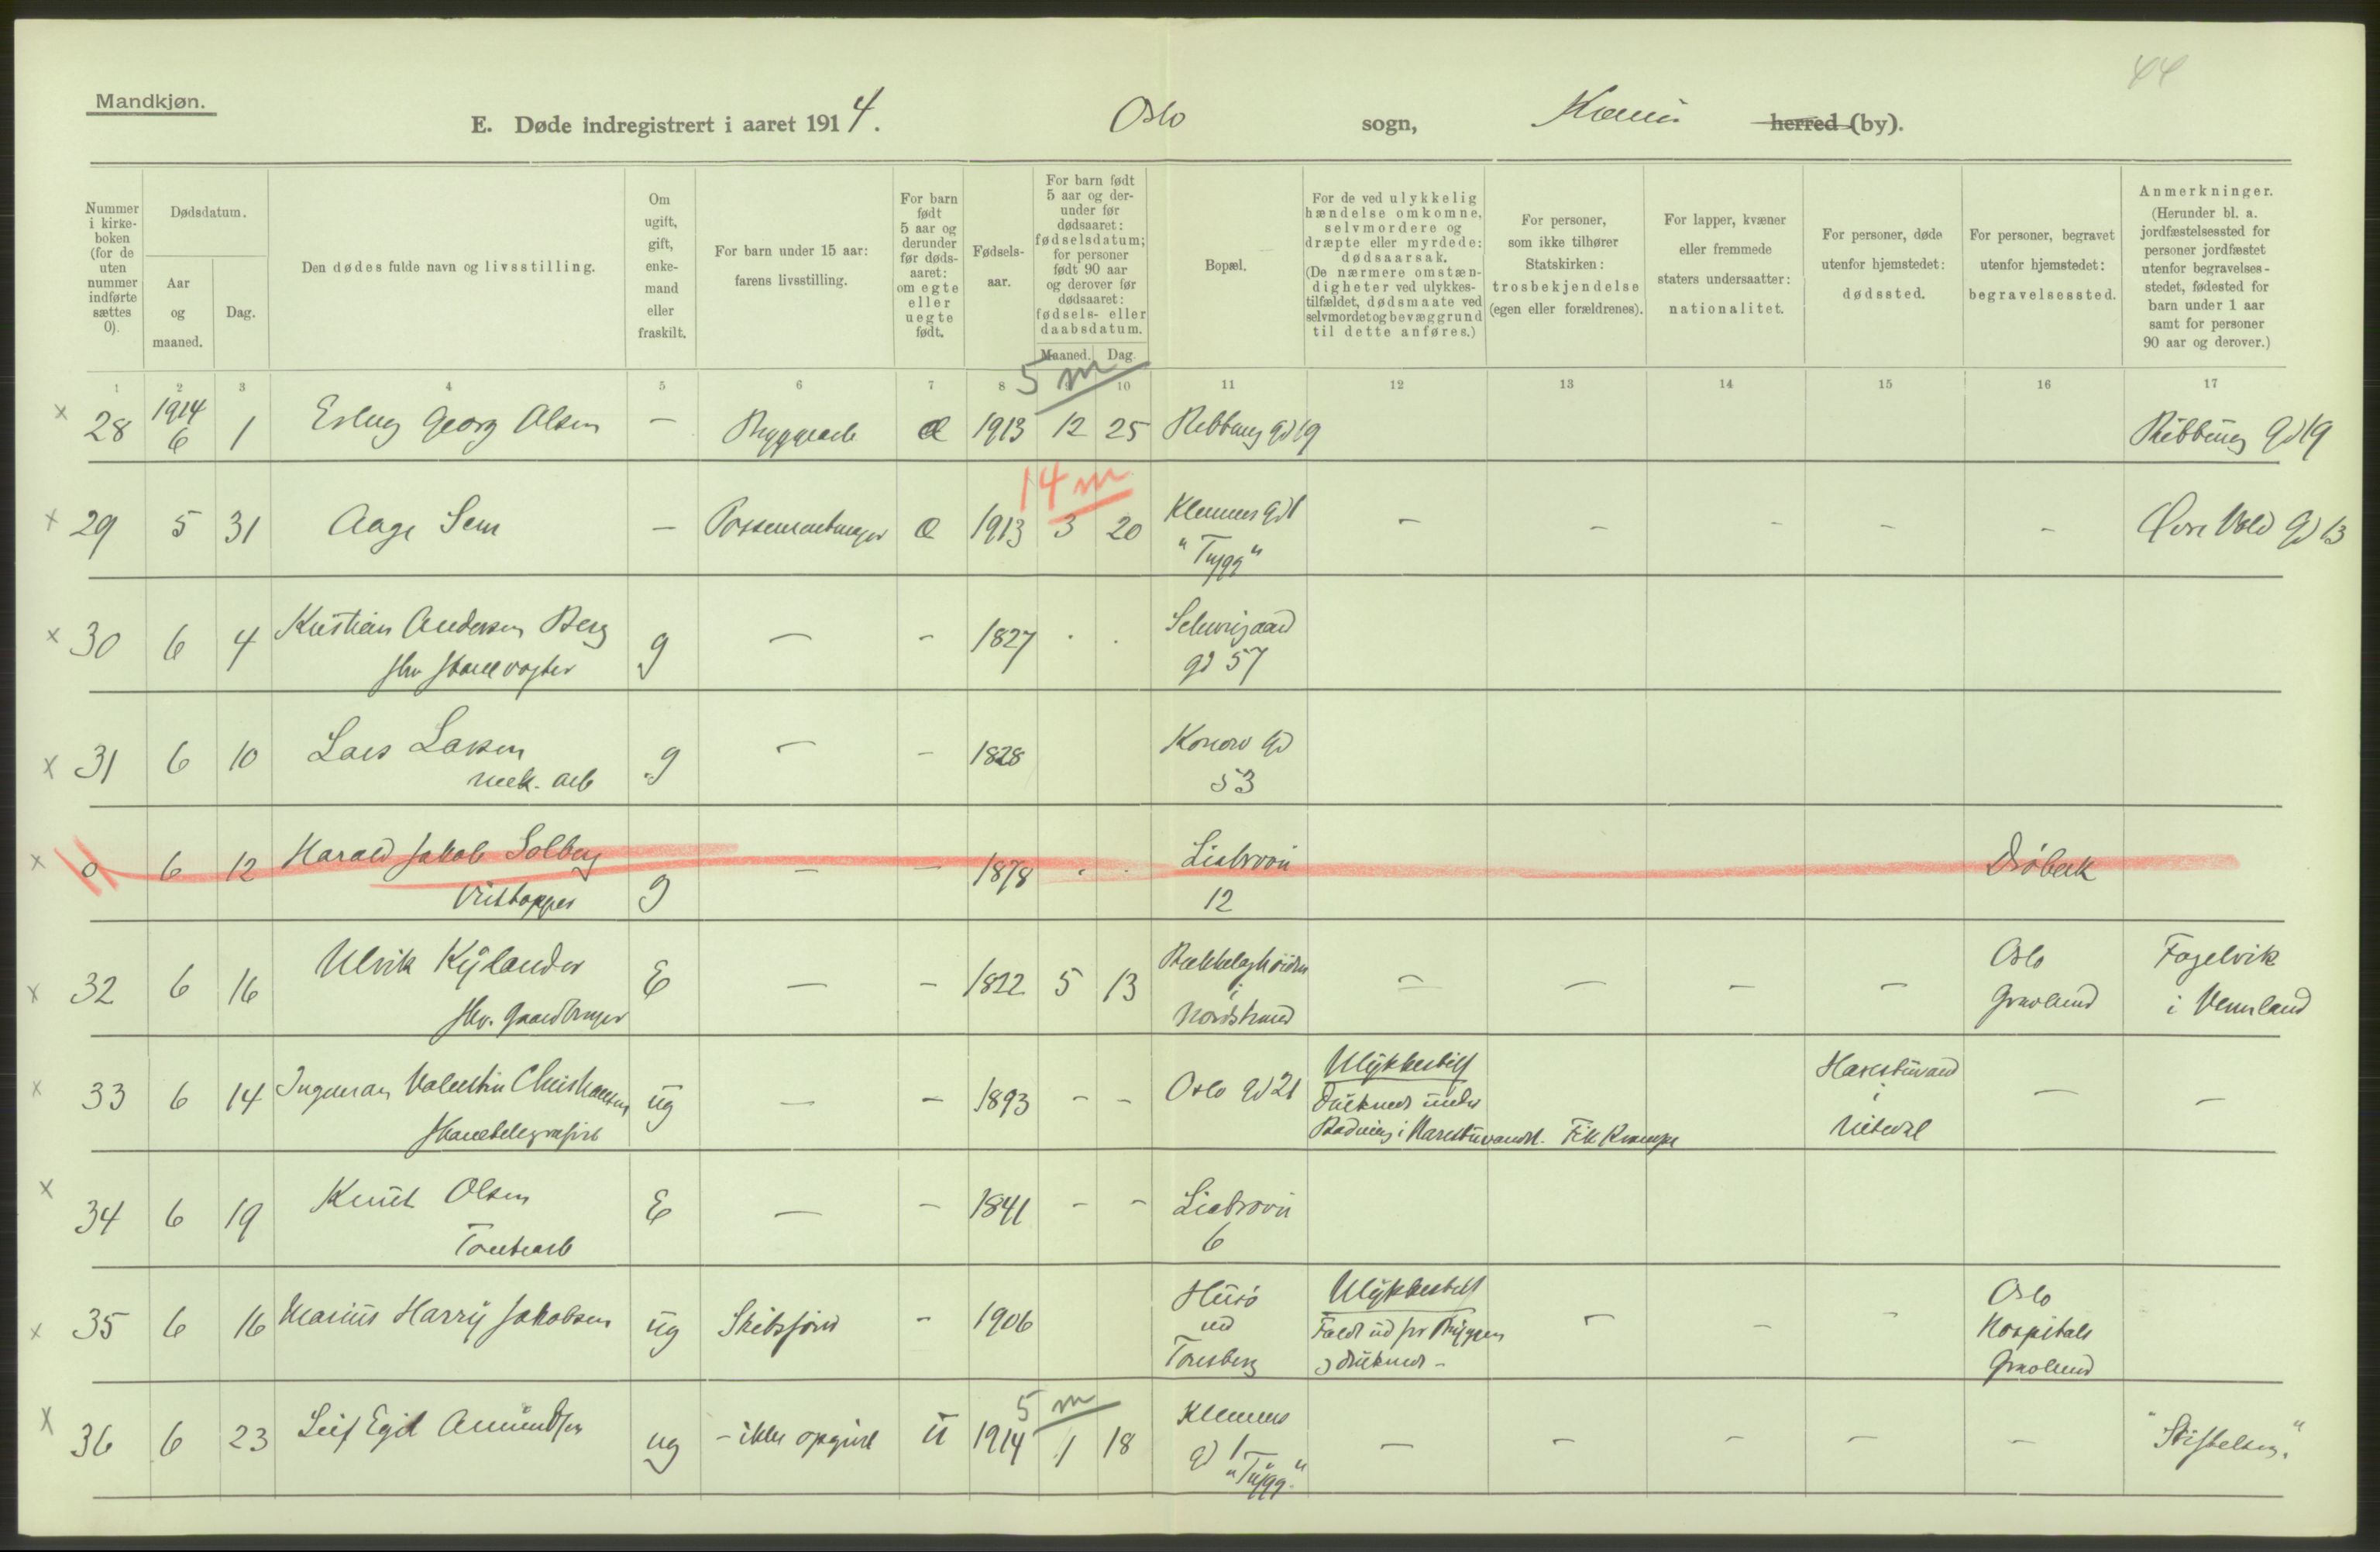 44
Mandkjøn.
E. Døde indregistrert i aaret 1914. Oslo sogn, Kr.ania herred (by).
Nummer i kirke-boken (for de uten nummer indførte sættes 0).
Dødsdatum.
Aar og maaned.
Dag.
Den dødes fulde navn og livsstilling.
Om ugift, gift, enke-mand eller fraskilt.
For barn under 15 aar: farens livsstilling.
For barn født 5 aar og derunder før døds-aaret: om egte eller uegte født.
Fødsels-aar.
For barn født 5 aar og der-under før dødsaaret: fødselsdatum; for personer født 90 aar og derover før dødsaaret: fødsels- eller daabsdatum.
Maaned. Dag.
Bopæl.
For de ved ulykkelig hændelse omkomne, selvmordere og dræpte eller myrdede: dødsaarsak. (De nærmere omstæn-digheter ved ulykkes-tilfældet, dødsmaate ved selvmordet og bevæggrund til dette anføres.)
For personer, som ikke tilhører Statskirken: trosbekjendelse (egen eller forældrenes).
For lapper, kvæner eller fremmede staters undersaatter: nationalitet.
For personer, døde utenfor hjemstedet: dødssted.
For personer, begravet utenfor hjemstedet: begravelsessted.
Anmerkninger. (Herunder bl. a. jordfæstelsessted for personer jordfæstet utenfor begravelses-stedet, fødested for barn under 1 aar samt for personer 90 aar og derover.)
1 2 3 4 5 6 7 8 9 10 11 12 13 14 15 16 17
5 m
x 28 1914 6 1 Erling Georg Olsen — Byggearb Æ 1913 12 25 Ribbung gd 19 Ribbung gd 19
14 m
x 29 5 31 Aage Sem — Possementmager Æ 1913 3 20 Klemens gd 1 – – – – – Øvre Vold gd 13
"Trygg"
x 30 6 4 Kristian Andersen Berg g — – 1827 . . Schweigaard
fhv staldvogter gd 57
x 31 6 10 Lars Larsen g — – 1828 Konow gd
mek. arb 53
x 0 6 12 Harald Jakob Solberg g – – 1878 . . Liabrovei Drøbak
12
x 32 6 16 Ulrik Kylander E — – 1822 5 13 Bækkelagshøiden – — – – Oslo Fogelvik
fhv. gaardbruger i Nordstrand Gravlund i Vermland
x 33 6 14 Ingeman Valentin Christiansen ug — – 1893 – – Oslo gd 21 Ulykkestilf Harestuvand — –
druknede under i
Badning i Harestuvandet. Fik Krampe Nitedal
x 34 6 19 Knut Olsen E — – 1841 – – Liabrovei
Tomtearb 6
x 35 6 16 Marius Harry Jakobsen ug Skibsfører – 1906 Husø Ulykkestilf – – – Oslo
ved Faldt ud fra Bryggen Hospitals
Tønsberg og druknede – Gravlund
5 m
x 36 6 23 Leif Egil Amundsen ug – ikke opgivet U 1914 1 18 Klemens – – – – – "Stiftelsen."
gd 1
"Trygg"